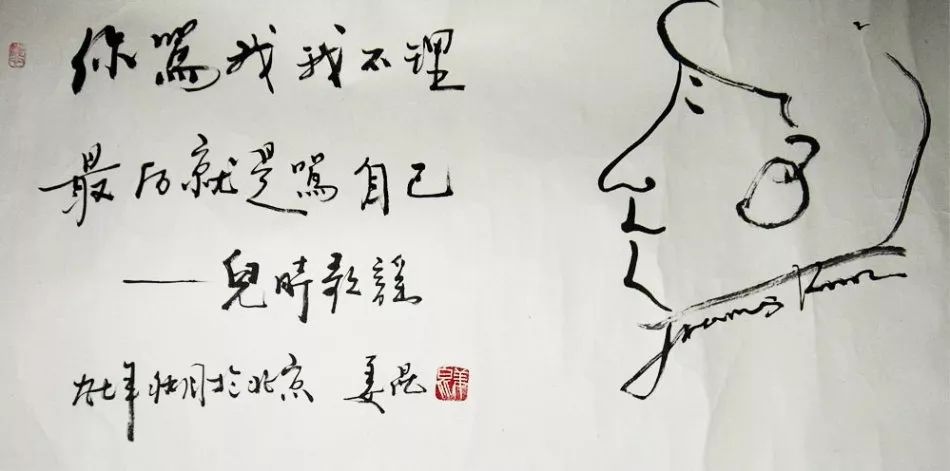 你罵我我不理
最后就是罵自己
——兒時歌謠
九七年秋月於北京 姜昆
Jiang Kun